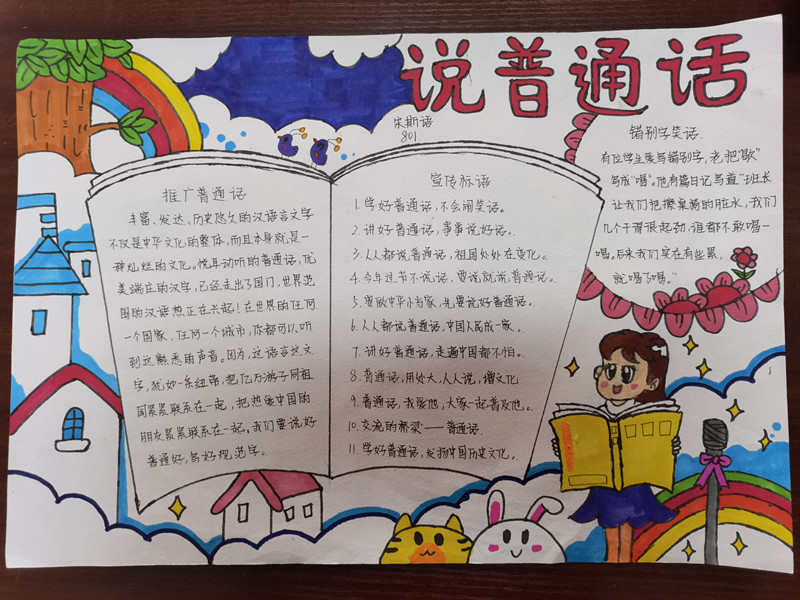 说普通话
宋斯语
801
推广普通话
丰富、发达、历史悠久的汉语言文字
不仅是中华文化的整体,而且本身就是一
种灿烂的文化。悦耳动听的普通话,优
美端庄的汉字,已经走出了国门,世界范
围的汉语热正在兴起!在世界的任何
一个国家,任何一个城市,你都可以听
到这熟悉的声音。因为,这语言这文
字,犹如一条纽带,把亿万游子同祖
国紧紧联系在一起,把热爱中国的
朋友紧紧联系在一起。我们要说好
普通好,写好规范字。
宣传标语
1.学好普通话,不会闹笑话。
2.讲好普通话,事事说好话。
3.人人都说普通话,祖国处处在变化。
4.今年过节不说话,要说就说普通话。
5.要做中华小当家,先要说好普通话。
6.人人都说普通话,中国人民成一家。
7.讲好普通话,走遍中国都不怕。
8.普通话,用处大,人人说,增文化
9.普通话,我爱他,大家一起普及他。
10.交流的桥梁——普通话.
11.学好普通话,发扬中国历史文化。
错别字笑话.
有位学生爱写错别字,老把"歇"
写成"喝"。他有篇日记写道"班长
让我们把擦桌椅的脏水,我们
几个干得很起劲,谁都不敢喝一
喝。后来我们实在有些累,
就喝了喝。"